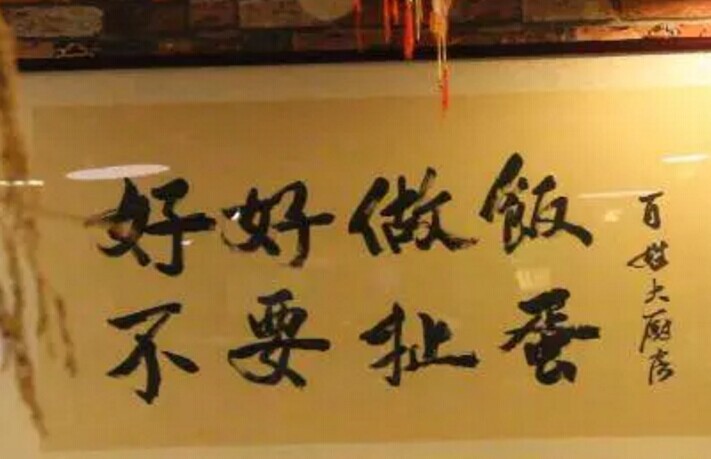 好好做饭
不要扯蛋
百姓大厨房